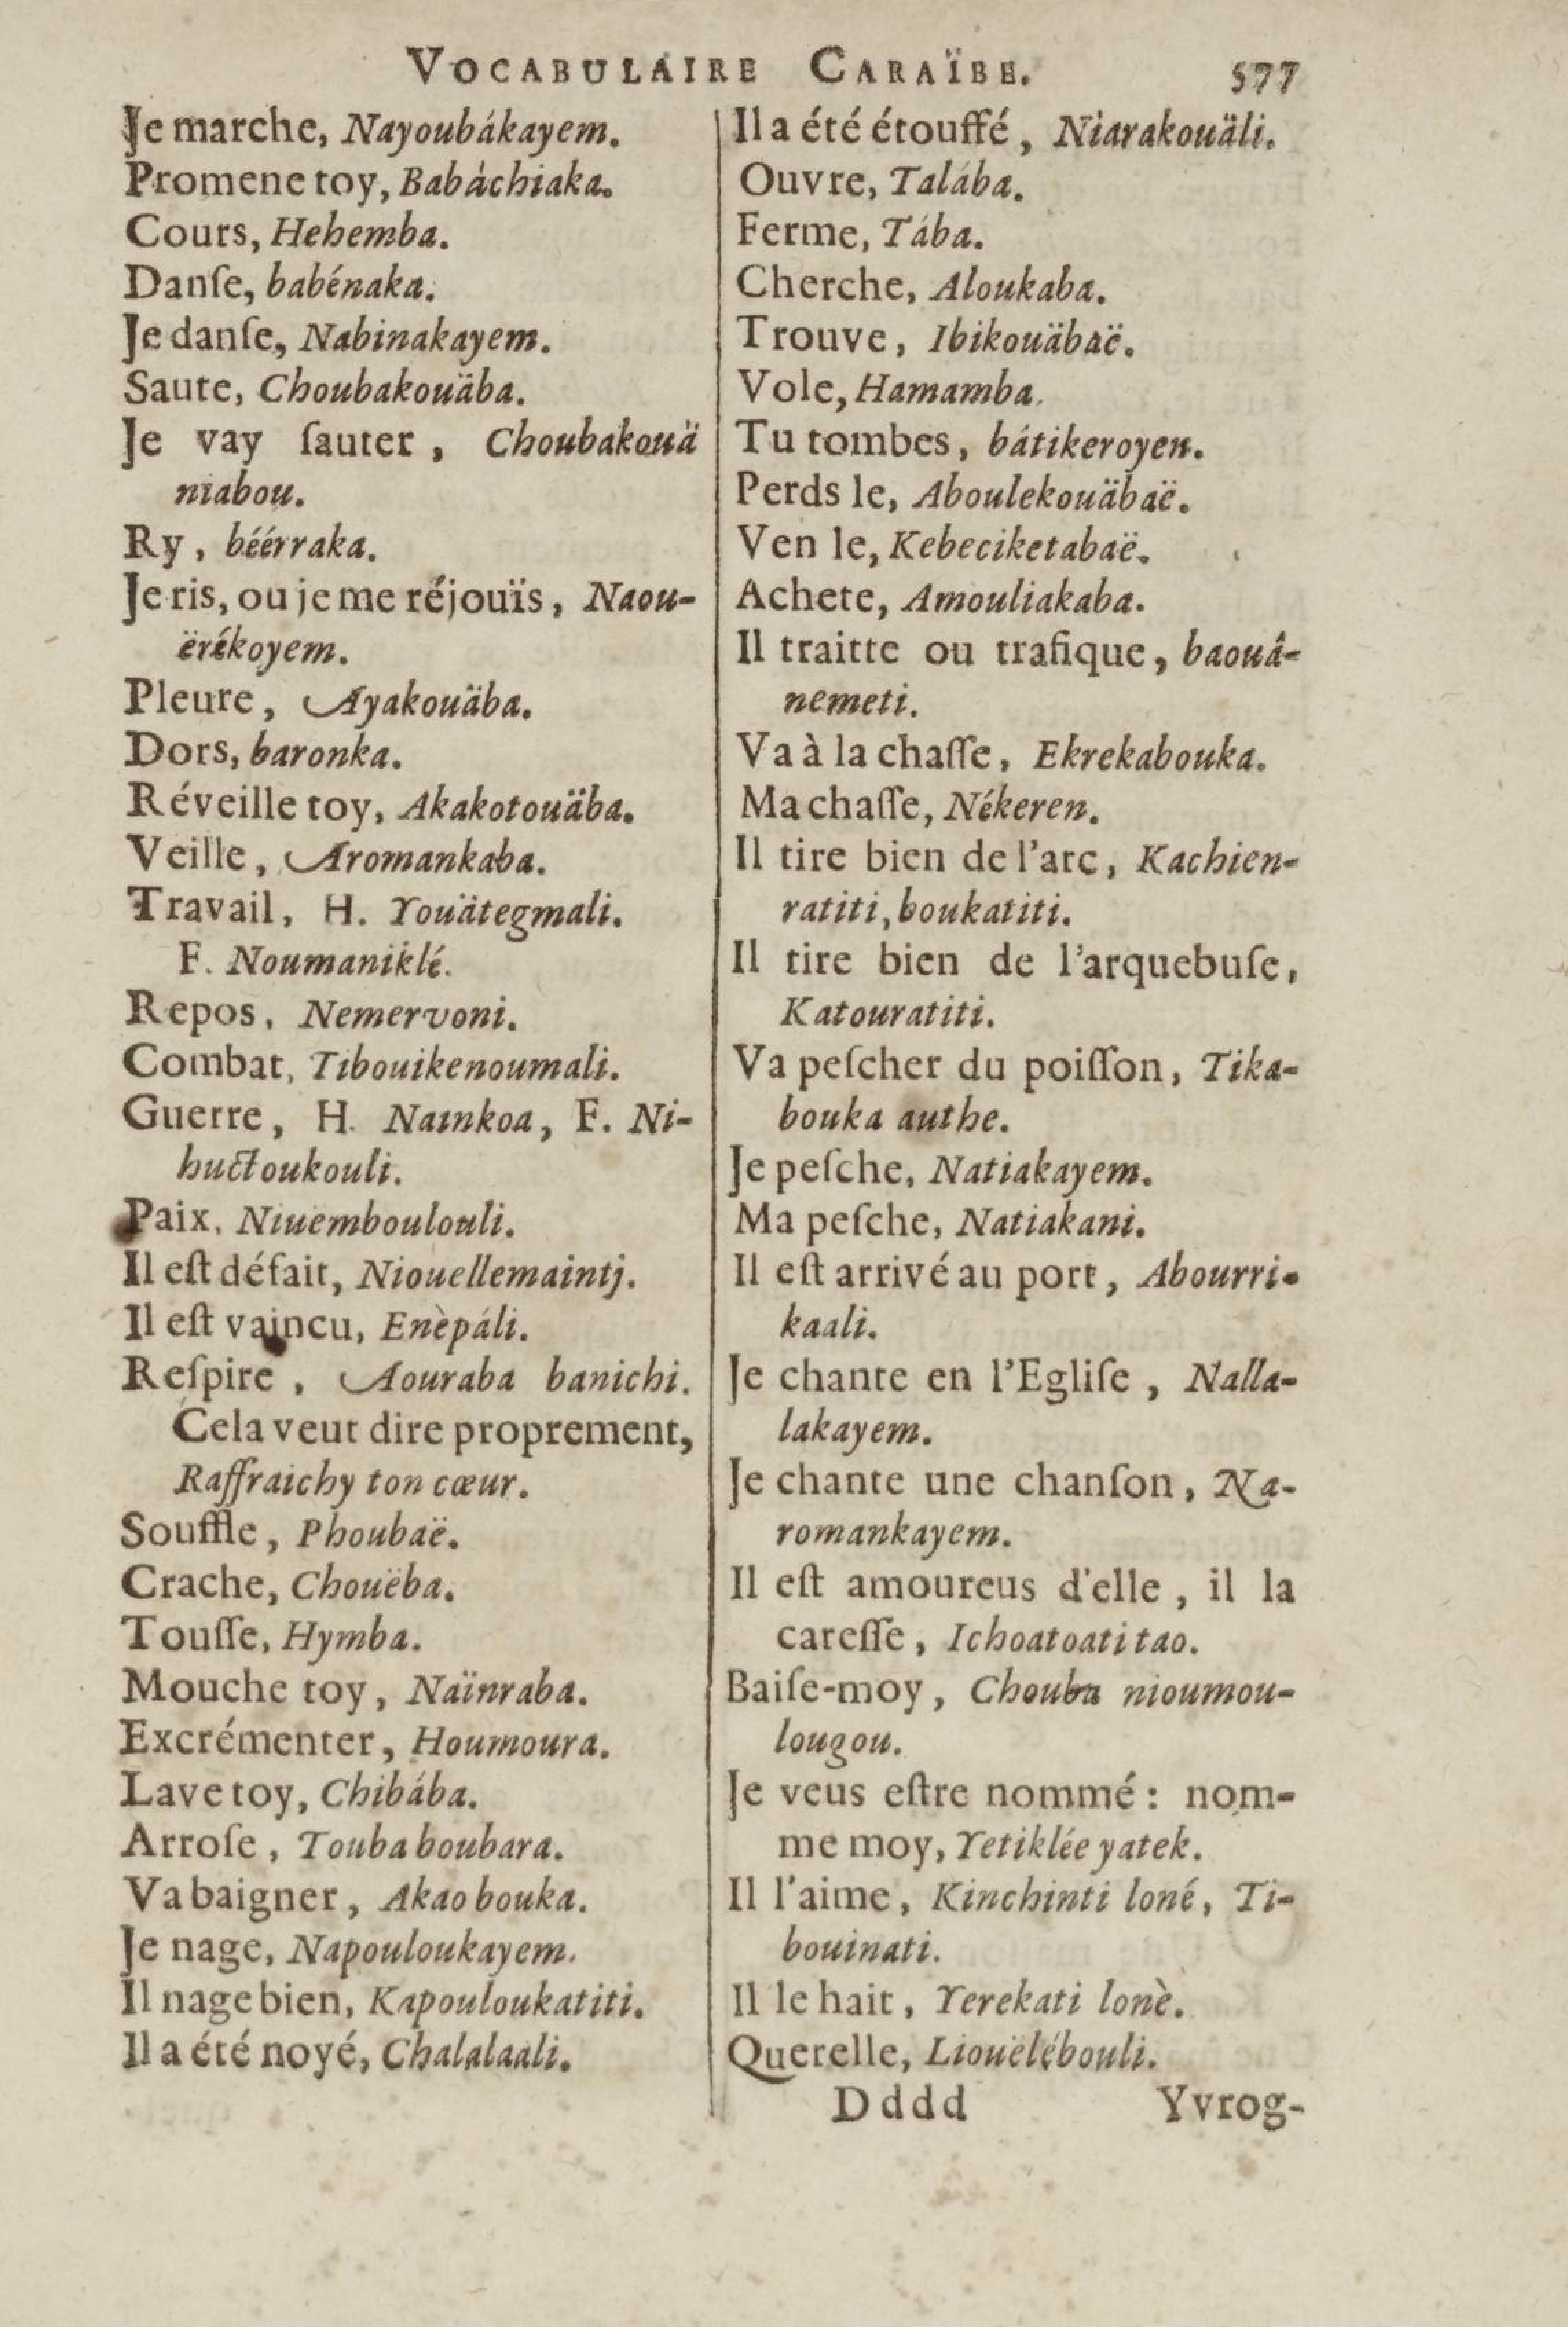 VOCABULAIRE CARAÏBE. 577
Je marche, Nayoubákayem.
Promene toy, Babàchiaka.
Cours, Hehemba.
Danſe, babénaka.
Je danſe, Nabinakayem.
Saute, Choubakouäba.
Je vay ſauter, Choubakouä
niabou.
Ry, béérraka.
Je ris, ou je me réjouïs, Naou-
ërékoyem.
Pleure, Ayakouäba.
Dors, baronka.
Réveille toy, Akakotouäba.
Veille, Aromankaba.
Travail, H. Youätegmali.
F. Noumaniklé.
Repos, Nemervoni.
Combat, Tibouikenoumali.
Guerre, H. Nainkoa, F. Ni-
huctoukouli.
Paix, Niuëmboulouli.
Il eſt défait, Niouellemaintj.
Il eſt vaincu, Enèpáli.
Reſpire, Aouraba banichi.
Cela veut dire proprement,
Raffraichy ton cœur.
Souffle, Phoubaë.
Crache, Chouëba.
Touſſe, Hymba.
Mouche toy, Naïnraba.
Excrémenter, Houmoura.
Lave toy, Chibába.
Arroſe, Touba boubara.
Va baigner, Akao bouka.
Je nage, Napouloukayem.
Il nage bien, Kapouloukatiti.
Il a été noyé, Chalalaali.
Il a été étouffé, Niarakouäli.
Ouvre, Talába.
Ferme, Tába.
Cherche, Aloukaba.
Trouve, Ibikouäbaë.
Vole, Hamamba.
Tu tombes, bátikeroyen.
Perds le, Aboulekouäbaë.
Ven le, Kebeciketabaë.
Achete, Amouliakaba.
Il traitte ou trafique, baouâ-
nemeti.
Va à la chaſſe, Ekrekabouka.
Ma chaſſe, Nékeren.
Il tire bien de l'arc, Kachien-
ratiti, boukatiti.
Il tire bien de l'arquebuſe,
Katouratiti.
Va peſcher du poiſſon, Tika-
bouka authe.
Je peſche, Natiakayem.
Ma peſche, Natiakani.
Il eſt arrivé au port, Abourri-
kaali.
Je chante en l'Egliſe, Nalla-
lakayem.
Je chante une chanſon, Na-
romankayem.
Il eſt amoureus d'elle, il la
careſſe, Ichoatoatitao.
Baiſe-moy, Chouba nioumou-
lougou.
Je veus eſtre nommé: nom-
me moy, Yetiklée yatek.
Il l'aime, Kinchinti loné, Ti-
bouinati.
Il le hait, Yerekati lonè.
Querelle, Liouëlébouli.
Dddd Yvrog-